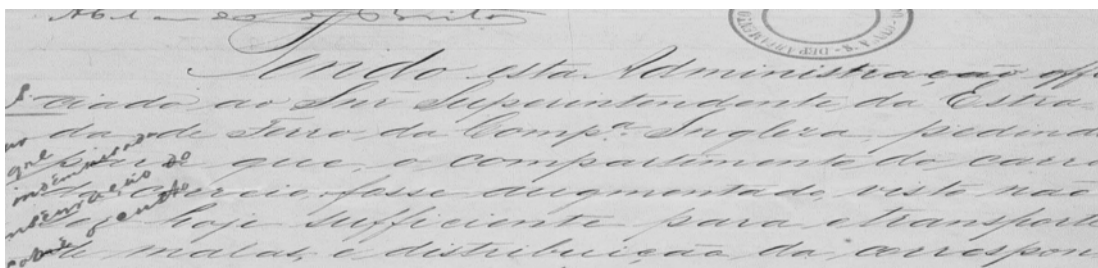 Tendo esta Administração offi
ciado ao Snr Superintendente da Estra-
da de Ferro da Comp.ª Ingleza, pedindo
para que o compartimento do carro
do Correio, fosse augmentado, visto não
ser hoje sufficiente para o transporte
de malas, e distribuição da correspon